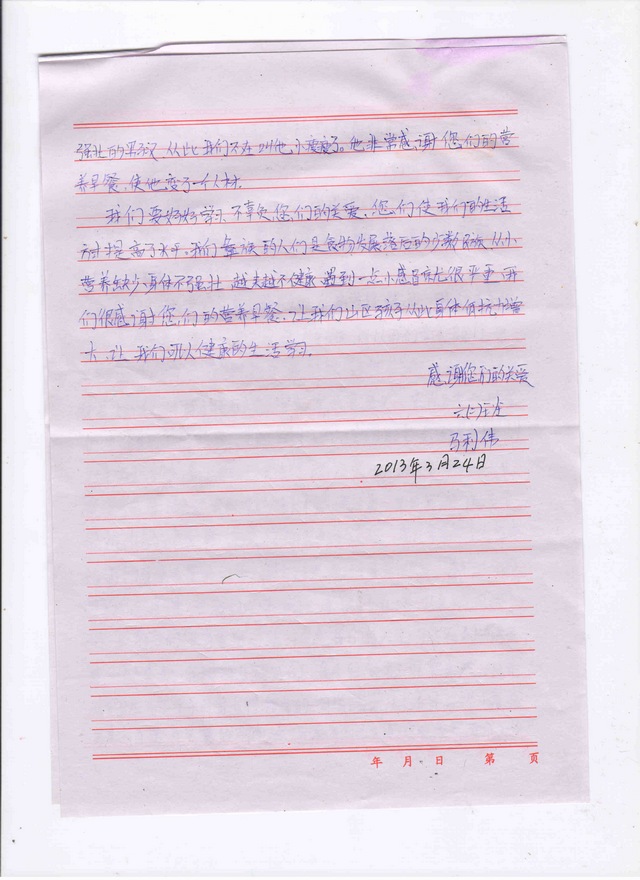 强壮的男孩 从此我们不在叫他小瘦瘦了。他非常感谢您们的营
养早餐,使他变了一个人样.
我们要好好学习 不辜负您们的关爱,您们使我们的生活
提高了水平,我们 族的人们是 发展落后的少数民族 从小
营养缺少 身体不强壮 越来越不健康 遇到一点小感冒就很严重 我
们很感谢您们的营养早餐,让我们山区孩子从此身体抵抗力增
大,让我们可以健康的生活学习.
感谢您们的关爱
六(1)班
马利伟
2013年3月24日
年 月 日 第 页